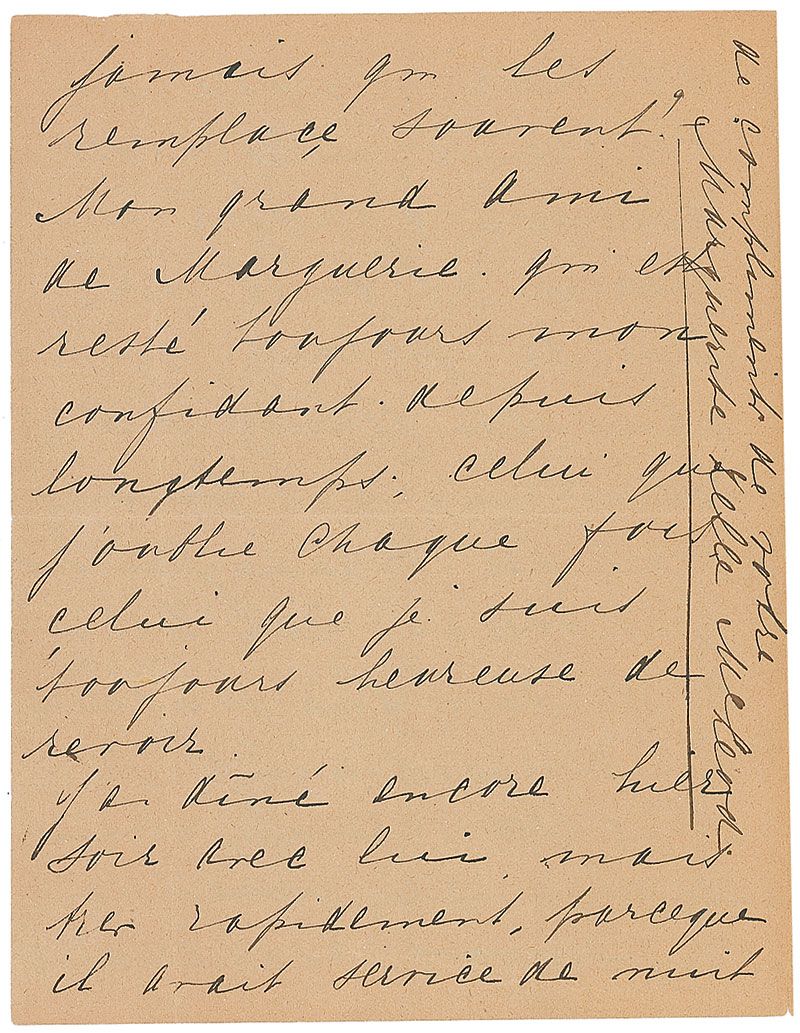 jamais qui les
remplaçe souvent.
Mon grand ami
de Marguerie. qui est
resté toujours mon
confidant. depuis
longtemps, celui que
j'oublie chaque fois
celui que je suis
toujours heureuse de
revoir.
J'ai dîné encore hier
soir avec lui, mais
tres rapidement, parceque
il avait service de nuit
de compliments de votre
Marguerite Zelle McLeod.